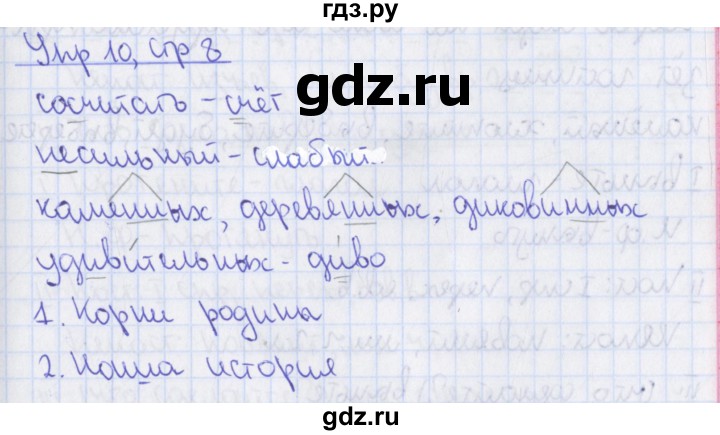 гдз.ру
Упр 10, стр 8
gdz.ru
сосчитать - счёт
несильный - слабый
каменных, деревянных, диковинных
удивительных - диво
1. Корни родины
2. Наша история
gdz.ru